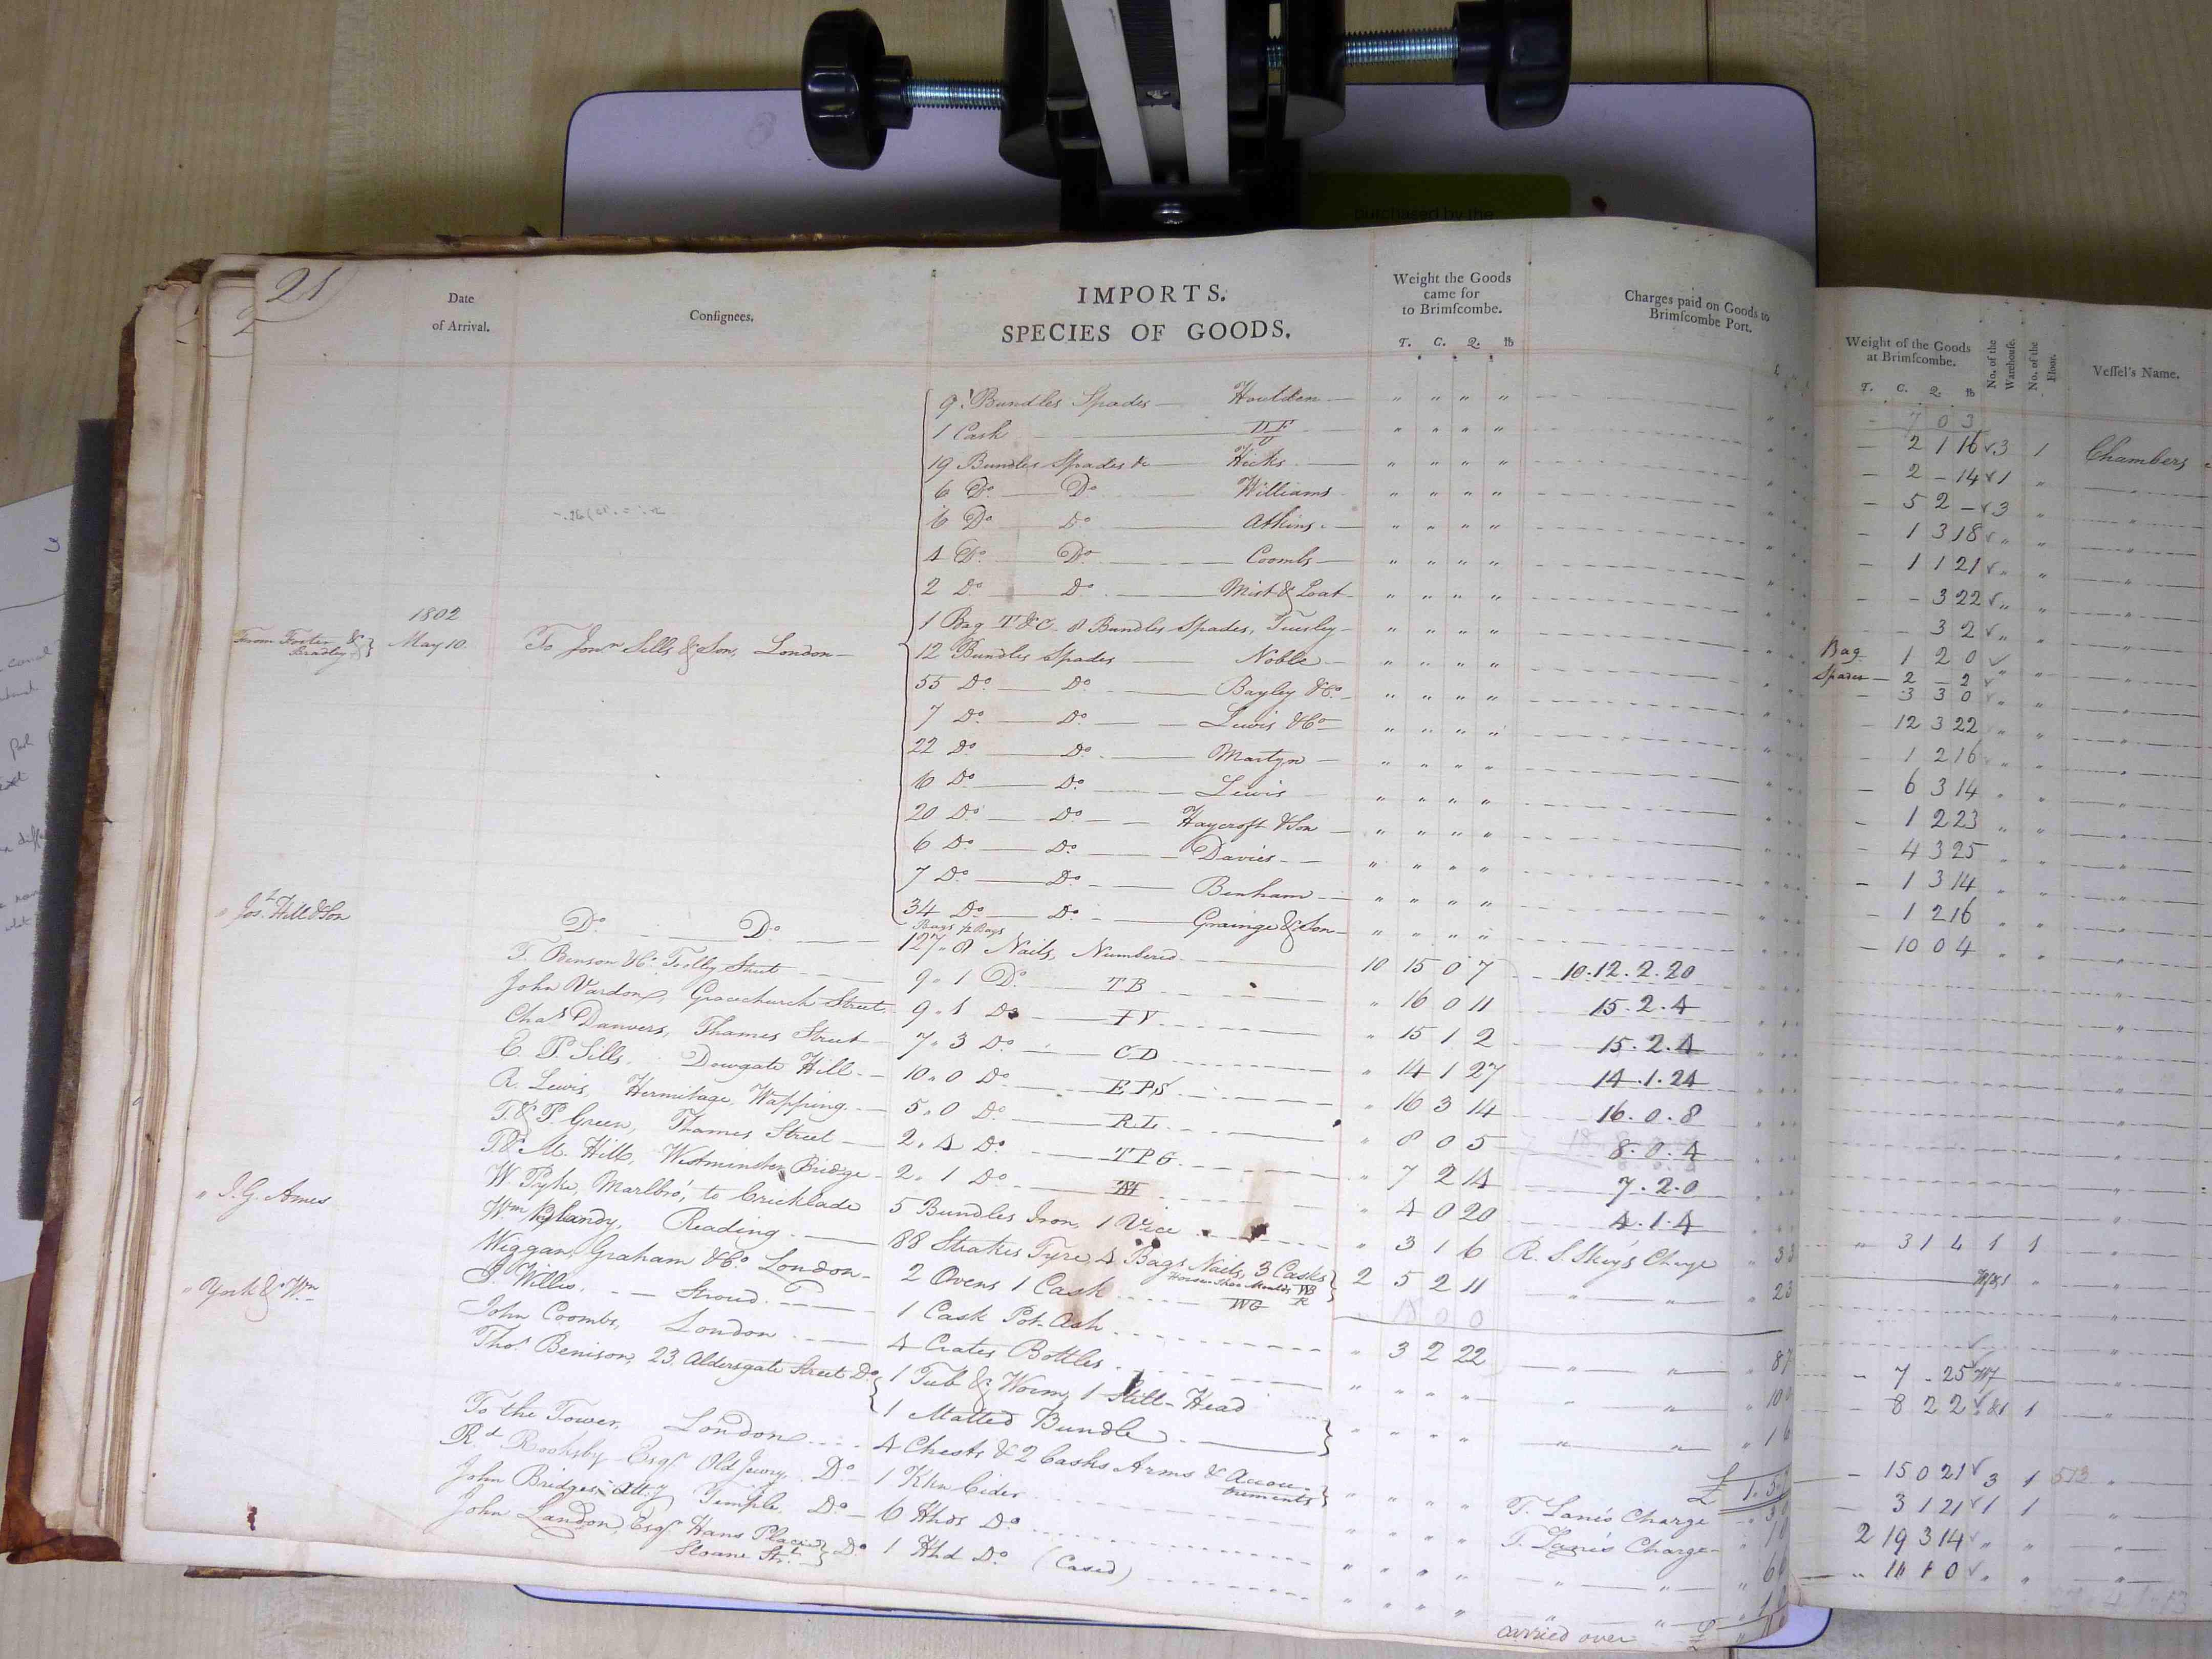 purchased by the
21
Date
of Arrival.
Consignees.
IMPORTS.
SPECIES OF GOODS.
Weight the Goods
came for
to Brimscombe.
T. C. Q. lb
Charges paid on Goods to
Brimscombe Port.
Weight of the Goods
at Brimscombe.
T. C. Q. lb
No. of the
Warehouse.
No. of the
Floor.
Vessel's Name.
9 Bundles Spades — Houlden
1 Cask
19 Bundles Spades &c — Hicks
6 Do — Do — Williams
6 Do Do — Atkins
4 Do Do Coombs
2 Do Do Mist & Loat
1 Bag T&C 8 Bundles Spades, Tinsley
12 Bundles Spades — Noble
55 Do — Do — Bayley & Co
7 Do — Do — Lewis & Co
22 Do — Do — Martyn
6 Do Do — Lewis
20 Do Do Haycroft & Son
6 Do Do — Davies
7 Do Do Benham
34 Do Do Grainge & Son
1802
From Foster &
Bradley } May 10 To Jonn Sills & Son, London
7 0 3
2 1 16 3 1 Chambers
2 - 14 1
5 2 - 3
1 3 18
1 1 21
3 22
3 2
Bag 1 2 0
Spades 2 - 2
3 3 0
12 3 22
1 2 16
6 3 14
1 2 23
4 3 25
1 3 14
1 2 16
10 0 4
" Jos. Hill & Son Do Do 127 " 8 Nails, Numbered 10 15 0 7 10.12.2.20
Bags ½ Bags
T. Benson & Co Toolley Street 9 " 1 Do TB " 16 0 11 15.2.4
John Vardon, Gracechurch Street 9 " 1 Do IV " 15 1 2 15.2.4
Chas Danvers, Thames Street 7 " 3 Do CD " 14 1 27 14.1.24
E. P. Sills, Dowgate Hill 10 " 0 Do EPS " 16 3 14 16.0.8
R. Lewis, Hermitage, Wapping 5 " 0 Do RL " 8 0 5 8.0.4
T. & P. Green, Thames Street 2 " 4 Do TPG " 7 2 14 7.2.0
T. & M. Hill, Westminster Bridge 2 " 1 Do " 4 0 20 4.1.4
" I. G. Ames W Pyke, Marlbro', to Cricklade 5 Bundles Iron, 1 Vice " 3 1 6 R. S. Skey's Charge " 3 1 4 1 1
Wm Blandy, Reading 88 Strakes Tyre, 4 Bags Nails, 3 Casks } 2 5 2 11
Horse Shoe Moulds WB
Wiggan, Graham & Co London 2 Ovens 1 Cask WG
" York & Wm J. Willis, Stroud 1 Cask Pot-Ash " 3 2 22
John Coombs, London 4 Crates Bottles 7 - 25
Thos Benison, 23, Aldersgate Street Do { 1 Tub & Worm, 1 Still-Head
1 Matted Bundle } 8 2 2
To the Tower, London 4 Chests & 2 Casks Arms & Accou-
trements } T. Lane's Charge 15 0 21 3 1
Rd Rooksby Esqr Old Jewry, Do 1 Kkn Cider T. Lane's Charge 3 1 21 1 1
John Bridges Atty Temple Do 6 Hhds Do 2 19 3 14
John Landon, Esqr Hans Place
Sloane Strt } Do 1 Hhd Do (Cased)
carried over